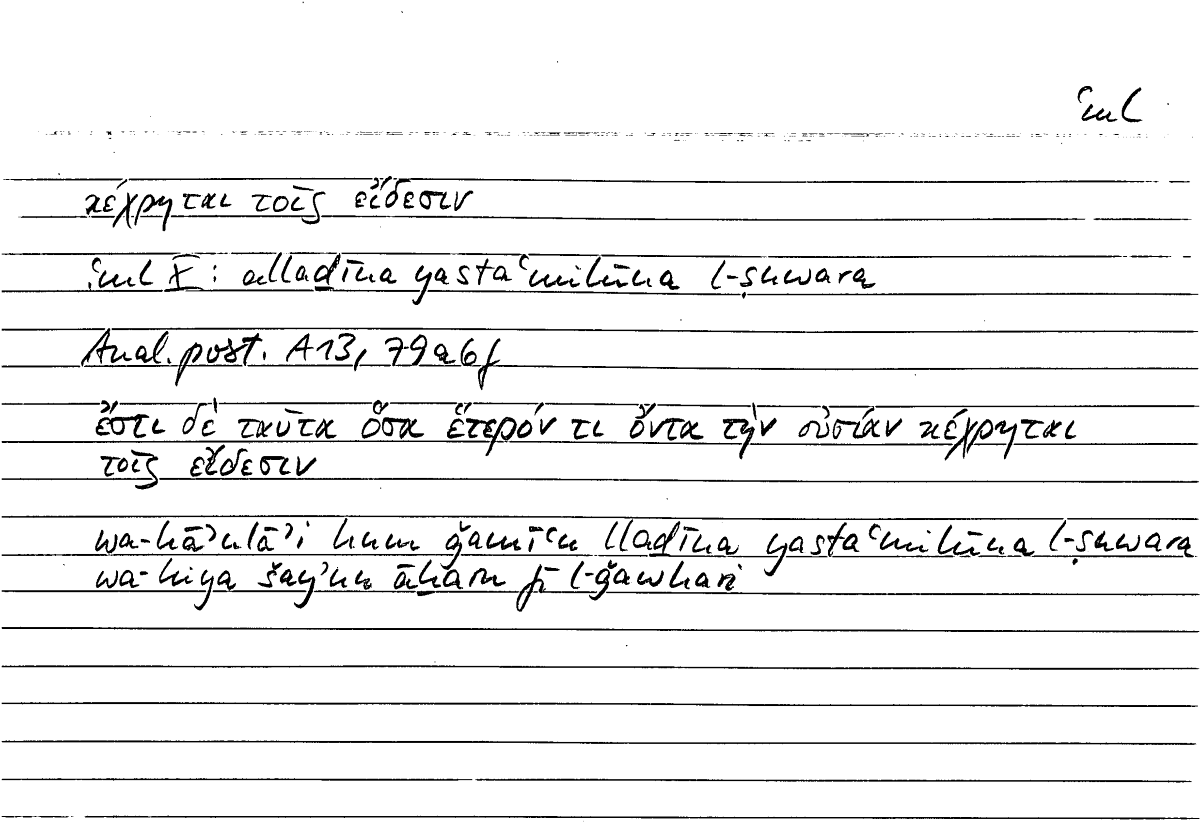 ʿml
κέχρηται τοῖς εἴδεσιν
ʿml X: allaḏīna yastaʿmilūna l-ṣuwara
Anal. post. A13, 79a6f
ἔστι δὲ ταῦτα ὅσα ἕτερόν τι ὄντα τὴν οὐσίαν κέχρηται
τοῖς εἴδεσιν
wa-hāʾulāʾi hum ǧamīʿu llaḏīna yastaʿmilūna l-ṣuwara
wa-hiya šayʾun āḫaru fī l-ǧawhari